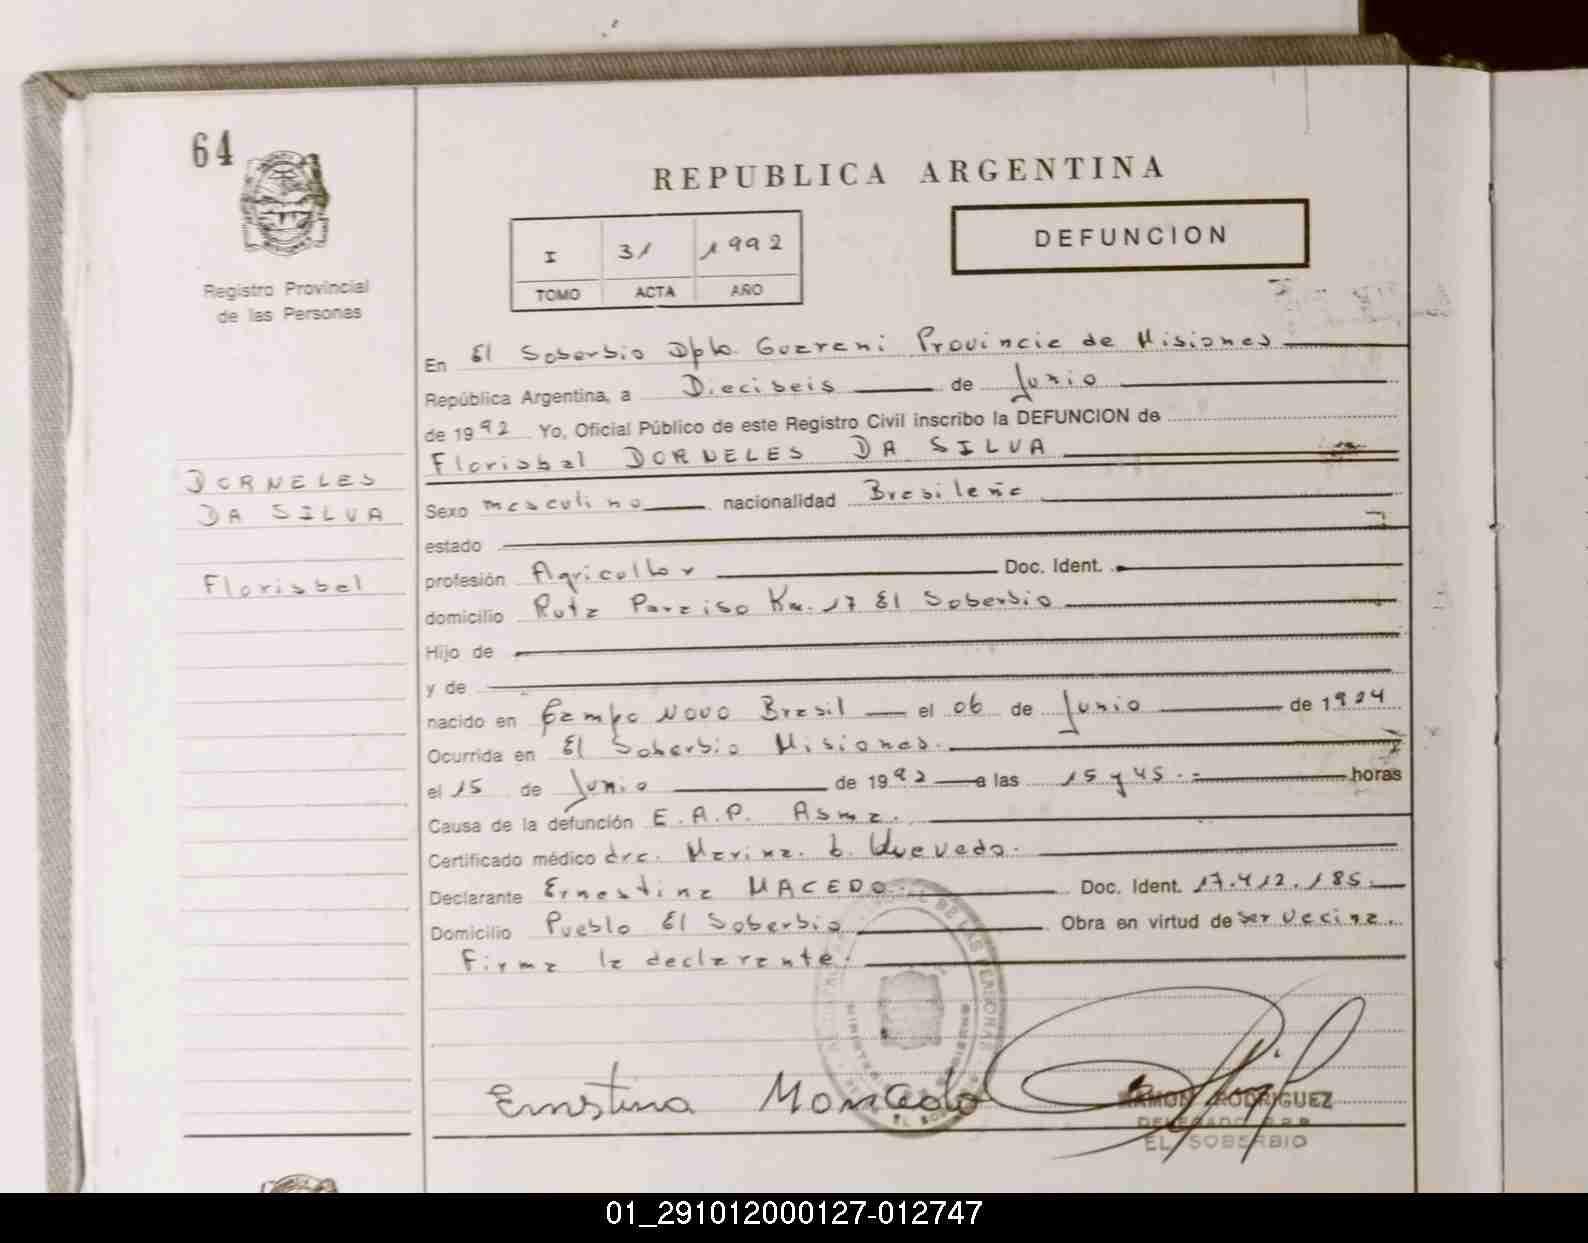 64
REPUBLICA ARGENTINA
DEFUNCION
I 31 1992
TOMO ACTA AÑO
Registro Provincial
de las Personas
En El Soberbio Dpto. Guarani Provincia de Misiones
República Argentina, a Dieciseis de Junio
de 1992 Yo, Oficial Público de este Registro Civil inscribo la DEFUNCION de
Florisbal DORNELES DA SILVA
DORNELES
DA SILVA
Florisbal
Sexo masculino nacionalidad Brasileña
estado
profesión Agricultor Doc. Ident.
domicilio Ruta Paraiso Km. 17 El Soberbio
Hijo de
y de
nacido en Campo Novo Brasil el 06 de Junio de 1924
Ocurrida en El Soberbio Misiones.
el 15 de Junio de 1992 a las 15 y 45.- horas
Causa de la defunción E.A.P. Asma.
Certificado médico dra. Marina. b. Quevedo.
Declarante Ernestina MACEDO. Doc. Ident. 17.412.185.
Domicilio Pueblo El Soberbio Obra en virtud de ser vecina.
Firma la declarante.
Ernstina
RAMON RODRIGUEZ
DELEGADO R.P.P.
EL SOBERBIO
01_291012000127-012747